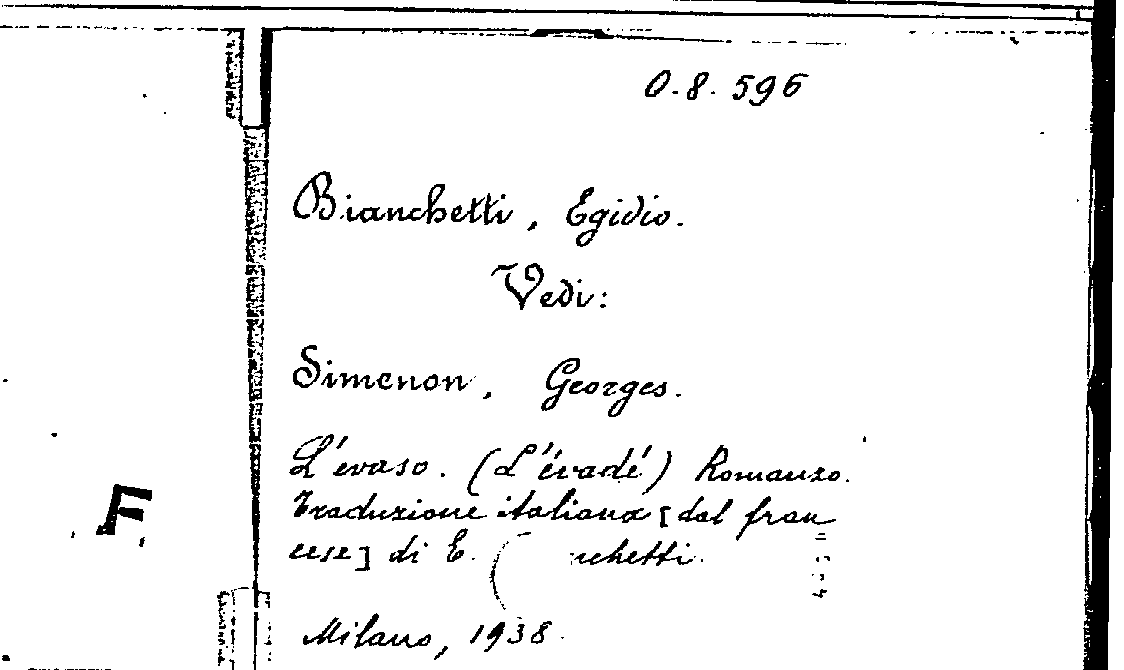 O.8. 596
Bianchetti, Egidio.
Vedi:
Simenon, Georges.
L'evaso. (L'évadé) Romanzo.
Traduzione italiana [dal fran
cese] di E. chetti.
F
Milano, 1938.